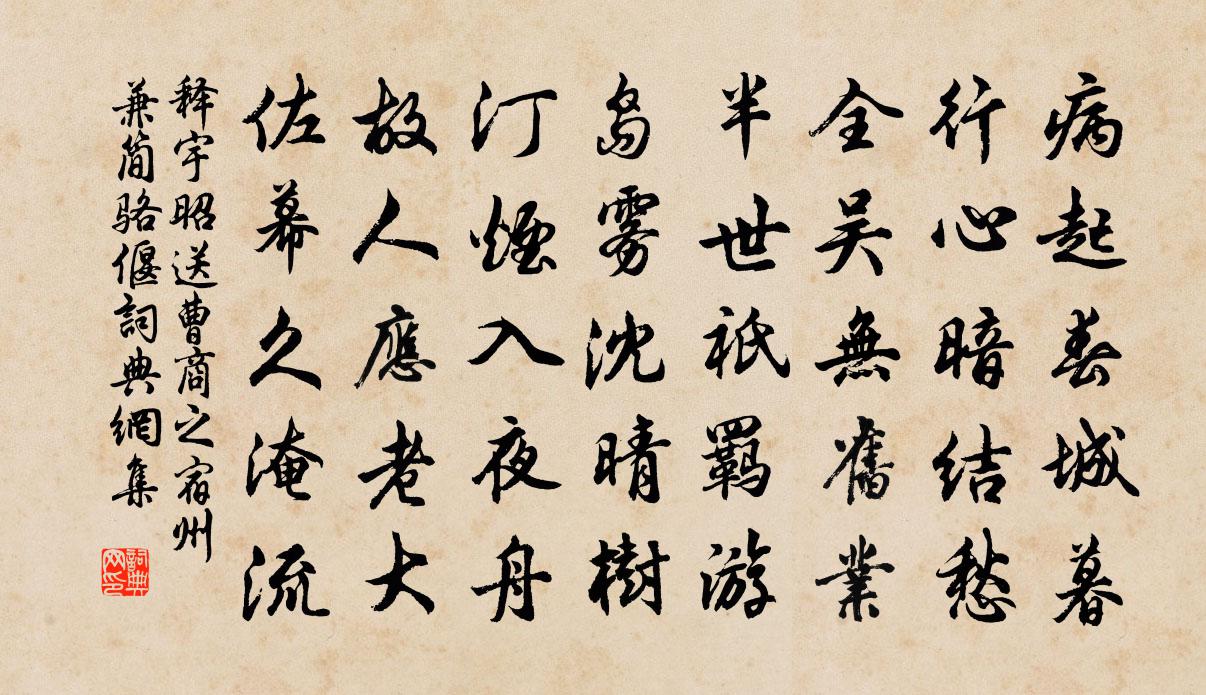 病起春城暮
行心暗結愁
全吴無舊業
半世祇羈游
島雾沈晴樹
汀煙入夜舟
故人應老大
佐幕久淹流
释宇昭送曹商之宿州
兼简骆偃詞典網集
詞典
网印